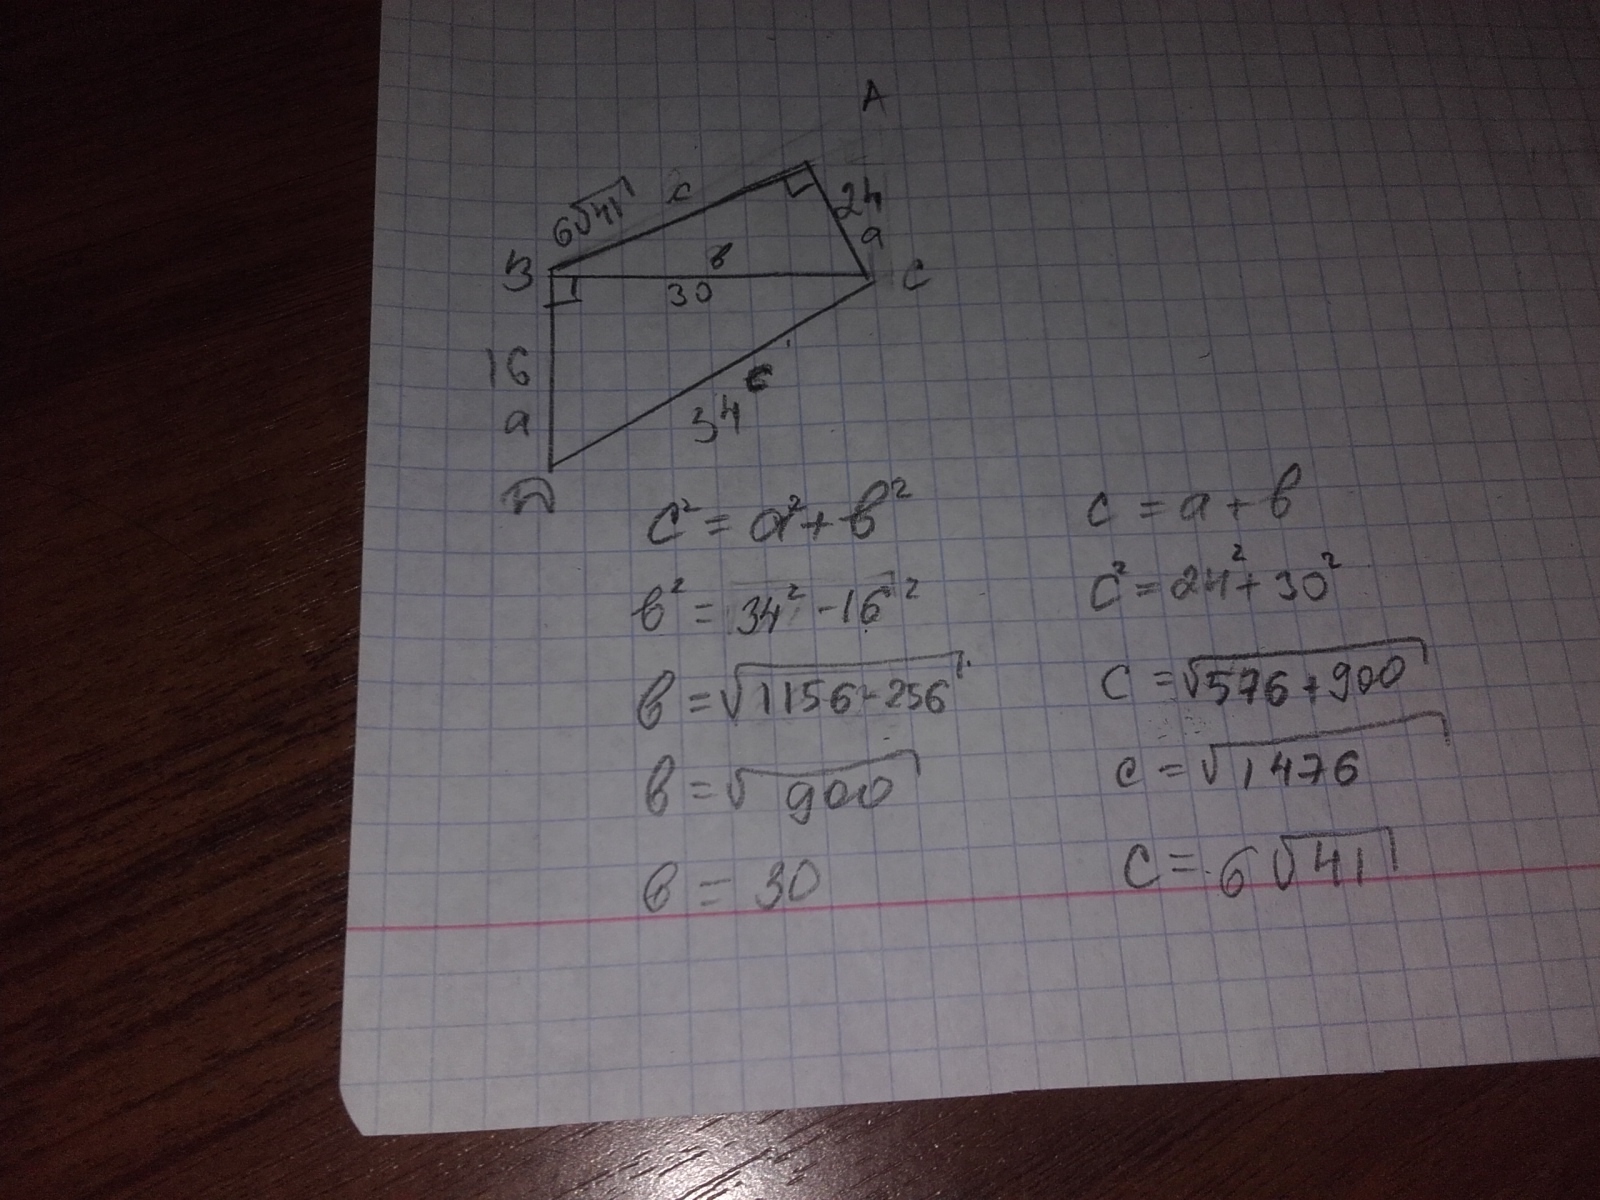 A
6√41 c
24
a
B в C
30
16
a
c
34
D
c² = a² + в²
в² = 34² - 16²
в = √1156 - 256
в = √900
в = 30
c = a + в
c² = 24² + 30²
c = √576 + 900
c = √1476
c = 6√41